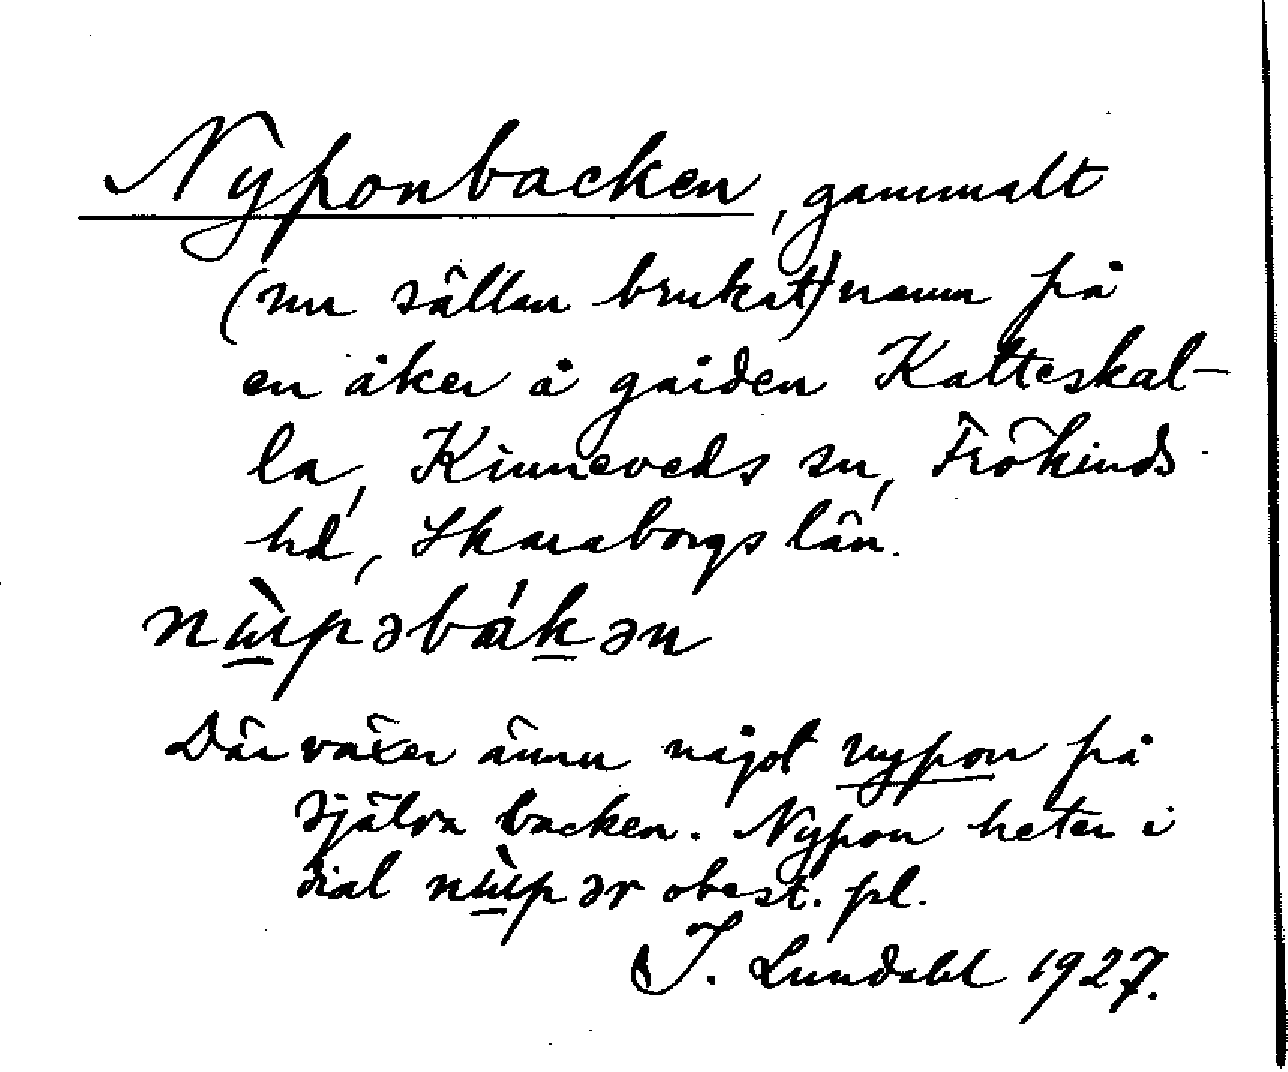 Nyponbacken, gammalt
(nu sällan brukat) namn på
en åker å gården Katteskal-
la, Kinneveds sn, Frökinds
hd, Skaraborgs län.
nɯ̀pəbákən
Där växer ännu något nypon på
själva backen. Nypon heter i
dial nɯ̀pər obest. pl.
J. Lundahl 1927.